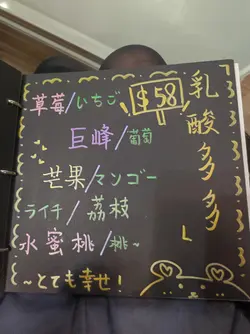 乳酸多多
$58
草莓/いちご
巨峰/葡萄
芒果/マンゴー
ライチ/荔枝
水蜜桃/桃~
~とても幸せ!